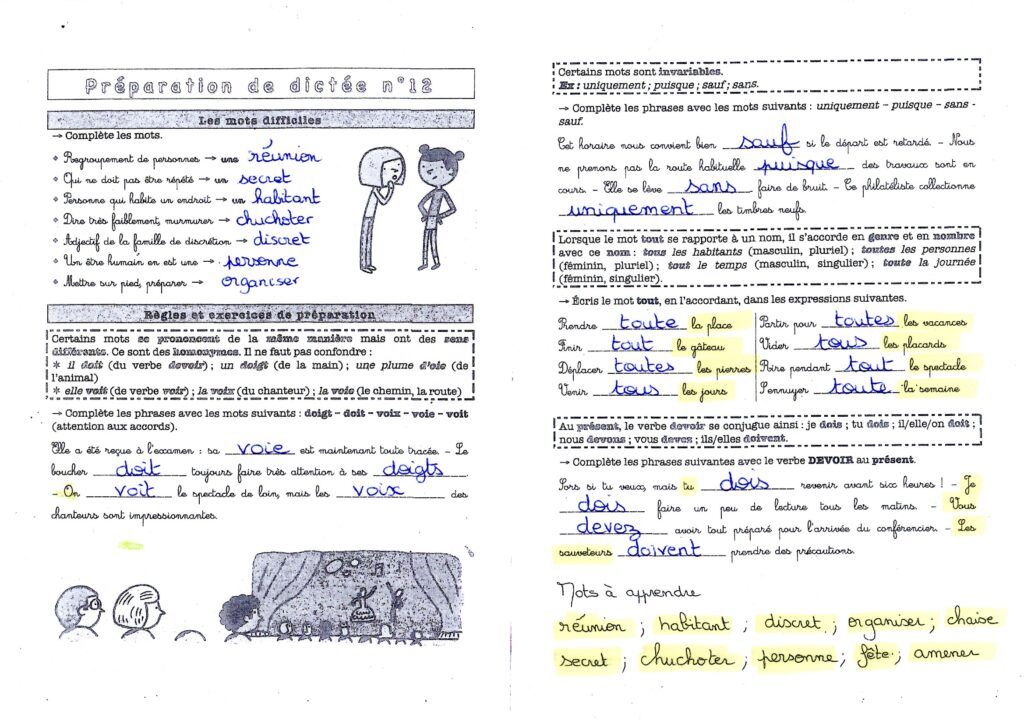 Préparation de dictée n°12
Les mots difficiles
→ Complète les mots.
Regroupement de personnes → une réunion
Qui ne doit pas être répété → un secret
Personne qui habite un endroit → un habitant
Dire très faiblement, murmurer → chuchoter
Adjectif de la famille de discrétion → discret
Un être humain en est une → personne
Mettre sur pied, préparer → organiser
Règles et exercices de préparation
Certains mots se prononcent de la même manière mais ont des sens
différents. Ce sont des homonymes. Il ne faut pas confondre :
* il doit (du verbe devoir) ; un doigt (de la main) ; une plume d'oie (de
l'animal)
* elle voit (de verbe voir) ; la voix (du chanteur) ; la voie (le chemin, la route)
→ Complète les phrases avec les mots suivants : doigt - doit - voix - voie - voit
(attention aux accords).
Elle a été reçue à l'examen : sa voie est maintenant toute tracée. - Le
boucher doit toujours faire très attention à ses doigts
- On voit le spectacle de loin, mais les voix des
chanteurs sont impressionnantes.
Certains mots sont invariables.
Ex : uniquement ; puisque ; sauf ; sans.
→ Complète les phrases avec les mots suivants : uniquement - puisque - sans -
sauf.
Cet horaire nous convient bien sauf si le départ est retardé. - Nous
ne prenons pas la route habituelle puisque des travaux sont en
cours. - Elle se lève sans faire de bruit. - Ce philatéliste collectionne
uniquement les timbres neufs.
Lorsque le mot tout se rapporte à un nom, il s'accorde en genre et en nombre
avec ce nom : tous les habitants (masculin, pluriel) ; toutes les personnes
(féminin, pluriel) ; tout le temps (masculin, singulier) ; toute la journée
(féminin, singulier).
→ Écris le mot tout, en l'accordant, dans les expressions suivantes.
Prendre toute la place
Finir tout le gâteau
Déplacer toutes les pierres
Venir tous les jours
Partir pour toutes les vacances
Vider tous les placards
Rire pendant tout le spectacle
S'ennuyer toute la semaine
Au présent, le verbe devoir se conjugue ainsi : je dois ; tu dois ; il/elle/on doit ;
nous devons ; vous devez ; ils/elles doivent.
→ Complète les phrases suivantes avec le verbe DEVOIR au présent.
Sors si tu veux, mais tu dois revenir avant six heures ! - Je
dois faire un peu de lecture tous les matins. - Vous
devez avoir tout préparé pour l'arrivée du conférencier. - Les
sauveteurs doivent prendre des précautions.
Mots à apprendre
réunion ; habitant ; discret ; organiser ; chaise
secret ; chuchoter ; personne ; fête ; amener